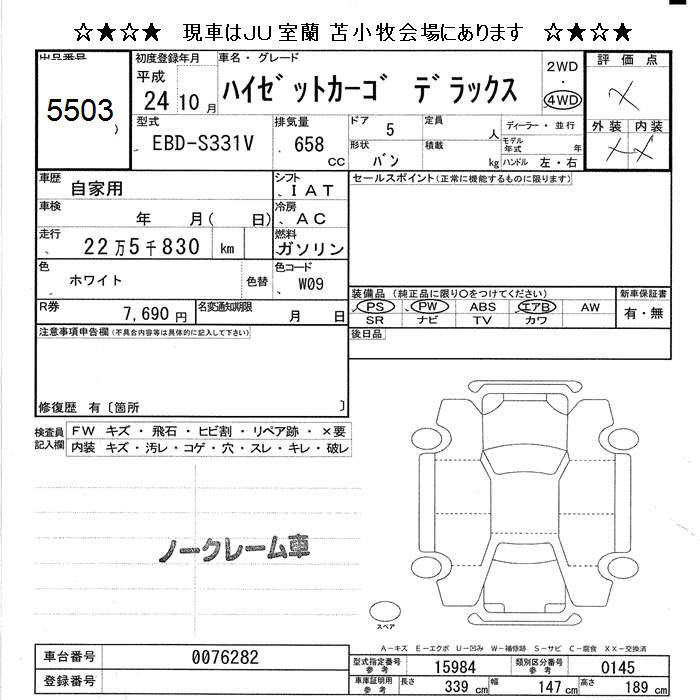 ☆★☆★ 現車はJU室蘭 苫小牧会場にあります ☆★☆★
出品番号
5503
初度登録年月
平成
24 10 月
車名・グレード
ハイゼットカーゴ デラックス
2WD
・
4WD
評価点
外装 内装
型式
EBD-S331V
排気量
658
CC
ドア
5
定員
人
ディーラー・並行
モデル年式
年
形状
バン
積載
kg
ハンドル 左・右
車歴
自家用
シフト
IAT
セールスポイント(正常に機能するものに限ります)
車検
年 月( 日)
冷房
AC
走行
22万5千830 km
燃料
ガソリン
色
ホワイト
色替
色コード
W09
装備品 (純正品に限り○をつけてください)
PS PW ABS エアB AW
SR ナビ TV カワ
新車保証書
有・無
R券
7,690 円
名変通知期限
月 日
後日品
注意事項申告欄(不具合内容等は具体的に記入して下さい)
修復歴 有〔箇所 〕
検査員記入欄
FW キズ・飛石・ヒビ割・リペア跡・×要
内装 キズ・汚レ・コゲ・穴・スレ・キレ・破レ
ノークレーム車
スペア
A-キズ E-エクボ U-凹み W-補修跡 S-サビ C-腐食 XX-交換済
車台番号
0076282
登録番号
型式指定番号
参考
15984
類別区分番号
参考
0145
車庫証明用
参考
長さ
339 cm
幅
147 cm
高さ
189 cm